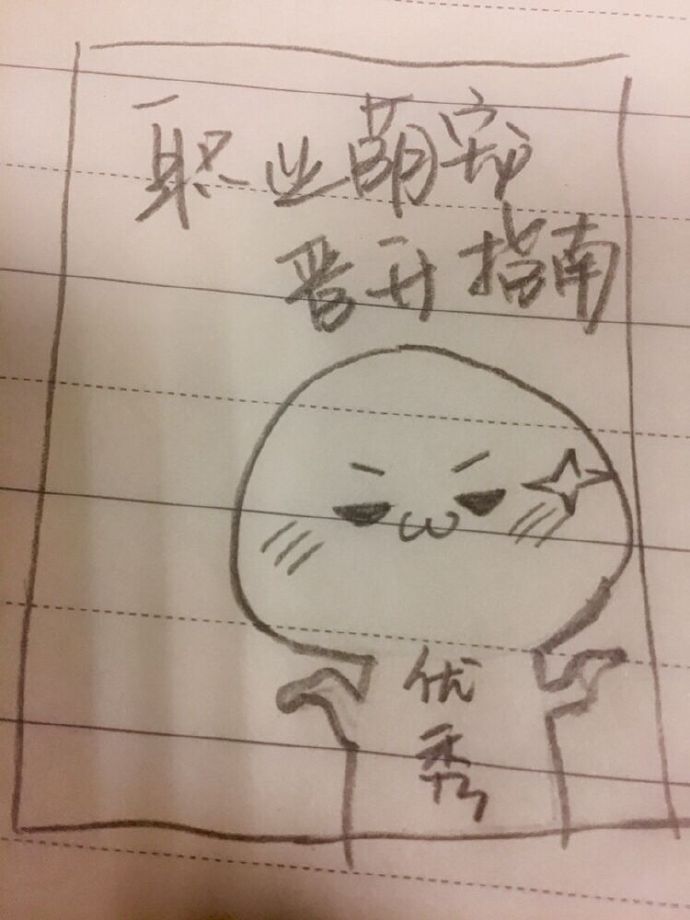 职业萌宠
晋升指南
优
秀